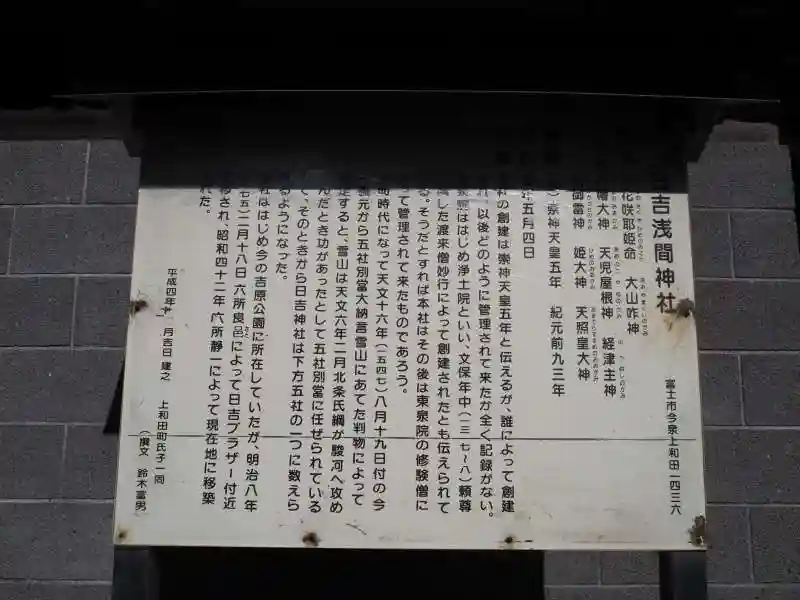 吉浅間神社
富士市今泉上和田一四三六
花咲耶姫命　大山咋神
大神　天児屋根神　経津主神
御雷神　姫大神　天照皇大神
崇神天皇五年　紀元前九三年
五月四日
の創建は崇神天皇五年と伝えるが、誰によって創建
れ、以後どのように管理されて来たか全く記録がない。
泉院ははじめ浄土院といい、文保年中（一三一七～八）頼尊
した渡来僧妙行によって創建されたとも伝えられて
る。そうだとすれば本社はその後は東泉院の修験僧に
って管理されて来たものであろう。
町時代になって天文十六年（一五四七）八月十九日付の今
義元から五社別當大納言雪山にあてた判物によって
定すると、雪山は天文六年二月北条氏綱が駿河へ攻め
んだとき功があったとして五社別當に任ぜられている
、そのときから日吉神社は下方五社の一つに数えら
るようになった。
社ははじめ今の吉原公園に所在していたが、明治八年
七五）二月十八日六所良邑によって日吉プラザー付近
移され、昭和四十二年六所静一によって現在地に移築
れた。
平成四年　月吉日建之　上和田町氏子一同
（撰文　鈴木富男）